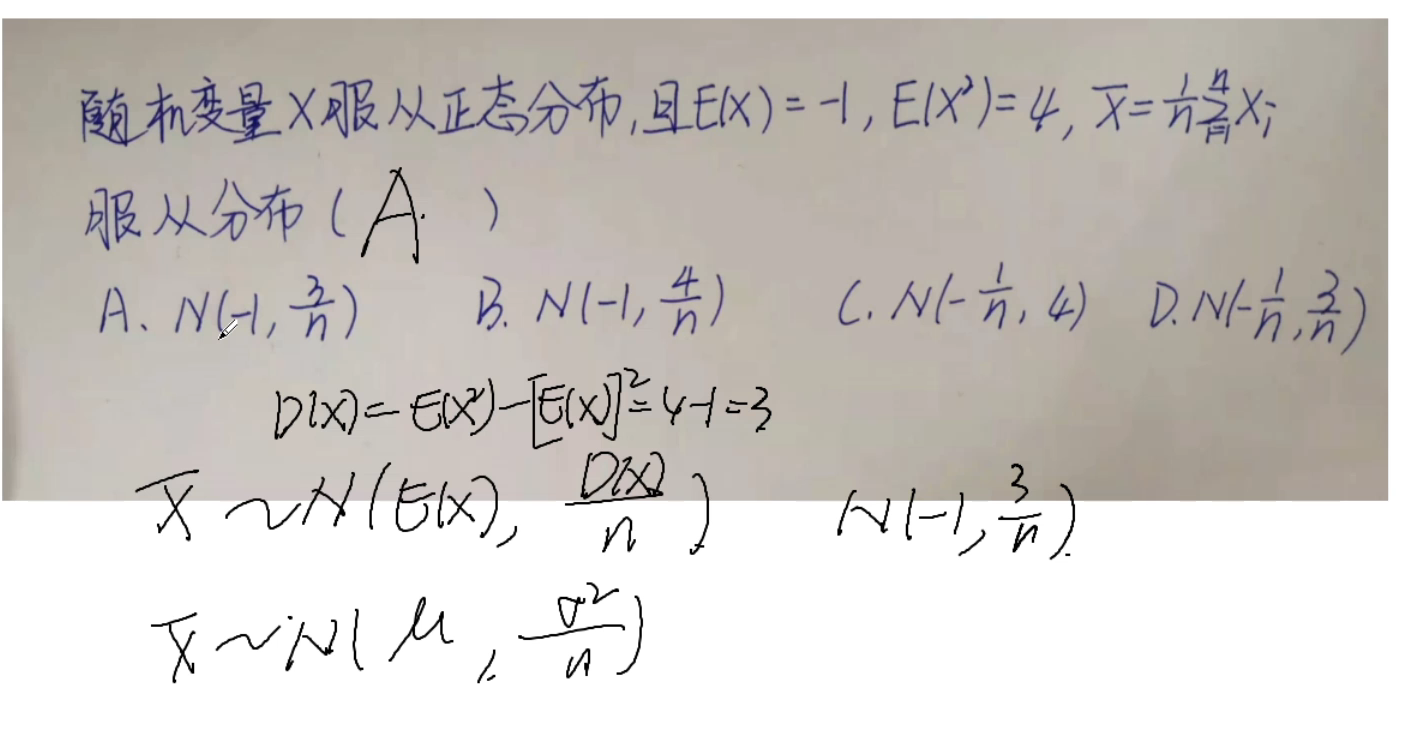 随机变量X服从正态分布,且E(X)=-1,E(X²)=4,X̄=1/n Σ(i=1→n) Xi
服从分布(A.)
A. N(-1, 3/n) B. N(-1, 4/n) C. N(-1/n, 4) D. N(-1/n, 3/n)
D(X)=E(X²)-[E(X)]²=4-1=3
X̄~N(E(X), D(X)/n) N(-1, 3/n).
X̄~N(μ, σ²/n)